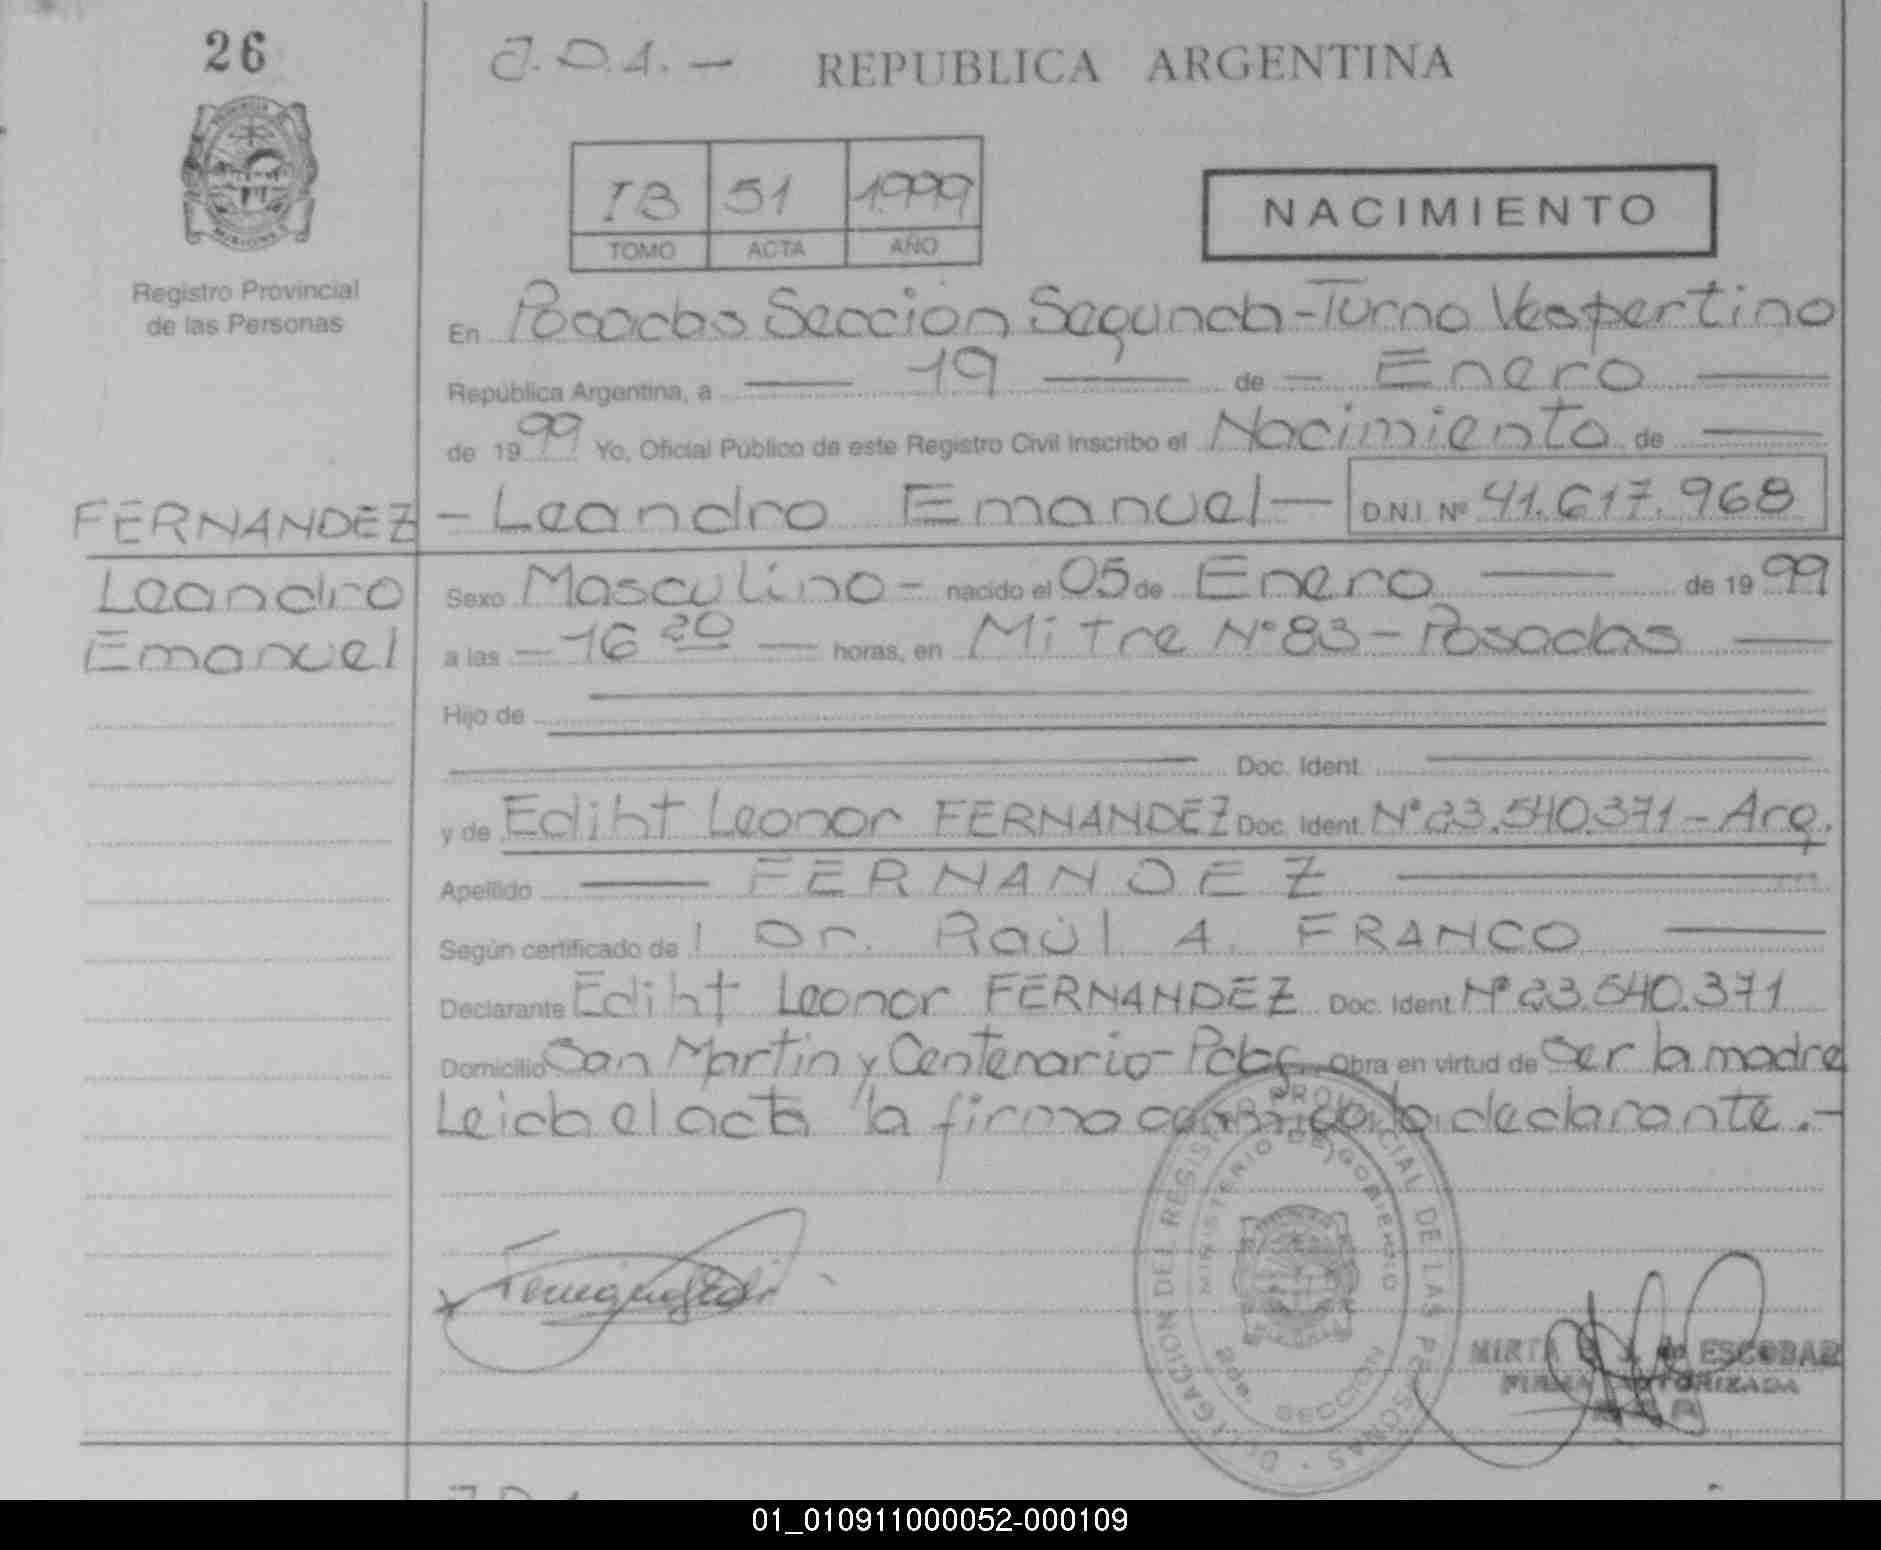 26
J.D.A. —
REPUBLICA ARGENTINA
IB 51 1999
TOMO ACTA AÑO
NACIMIENTO
Registro Provincial
de las Personas
En Posadas Sección Segunda - Turno Vespertino
República Argentina, a — 19 — de — Enero —
de 1999 Yo, Oficial Público de este Registro Civil inscribo el Nacimiento de —
FERNANDEZ - Leandro Emanuel — D.N.I. Nº 41.617.968
Leandro
Emanuel
Sexo Masculino - nacido el 05 de Enero — de 1999
a las — 16 20 — horas, en Mitre Nº 83 - Posadas —
Hijo de
Doc. Ident.
y de Ediht Leonor FERNANDEZ Doc. Ident. Nº 23.540.371 - Arg.
Apellido — FERNANDEZ —
Según certificado de Dr. Raúl A. FRANCO —
Declarante Ediht Leonor FERNANDEZ Doc. Ident. Nº 23.540.371
Domicilio San Martin y Centenario - Pdas Obra en virtud de ser la madre
Leida el acta la firma conmigo la declarante.-
DELEGACION DEL REGISTRO PROVINCIAL DE LAS PERSONAS
MINISTERIO DE GOBIERNO
2da. SECCION
MIRTA de ESCOBAR
FIRMA AUTORIZADA
01_010911000052-000109